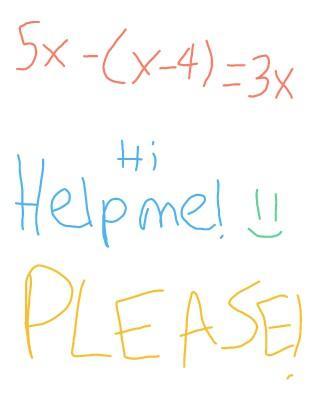 5x-(x-4)=3x
Hi
Help me! :)
PLEASE!